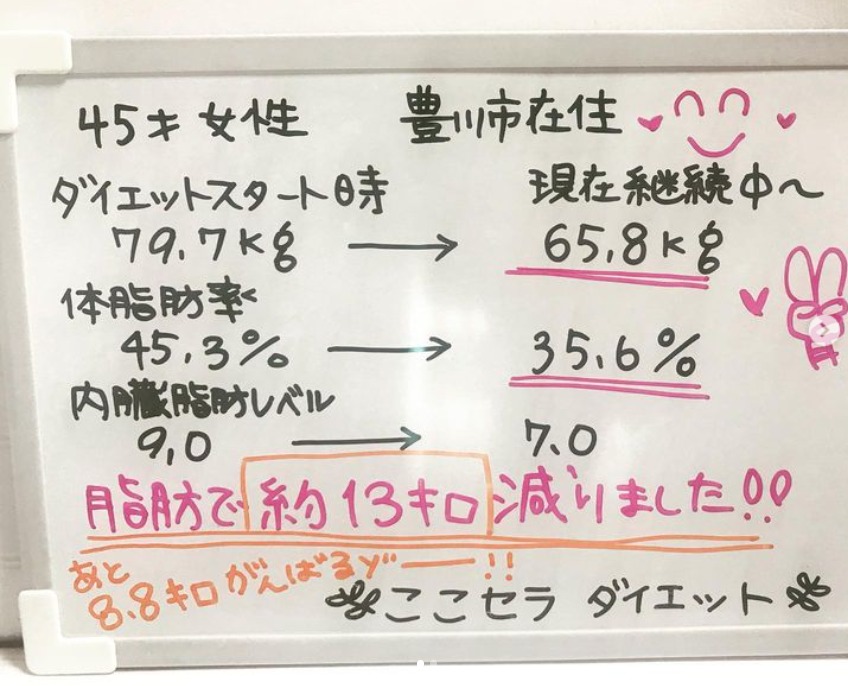 45才 女性 豊川市在住
ダイエットスタート時 現在継続中〜
79.7kg → 65.8kg
体脂肪率
45.3% → 35.6%
内臓脂肪レベル
9.0 → 7.0
脂肪で約13キロ減りました!!
あと
8.8キロがんばるゾー!!
ここセラ ダイエット